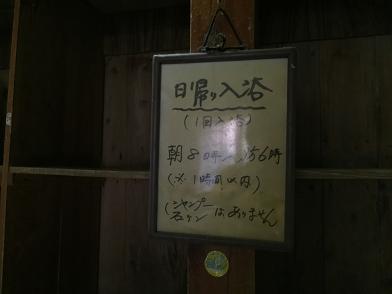 日帰り入浴
(1回入浴)
朝8時〜夕6時
(※1時間以内)
(シャンプー
石ケンはありません